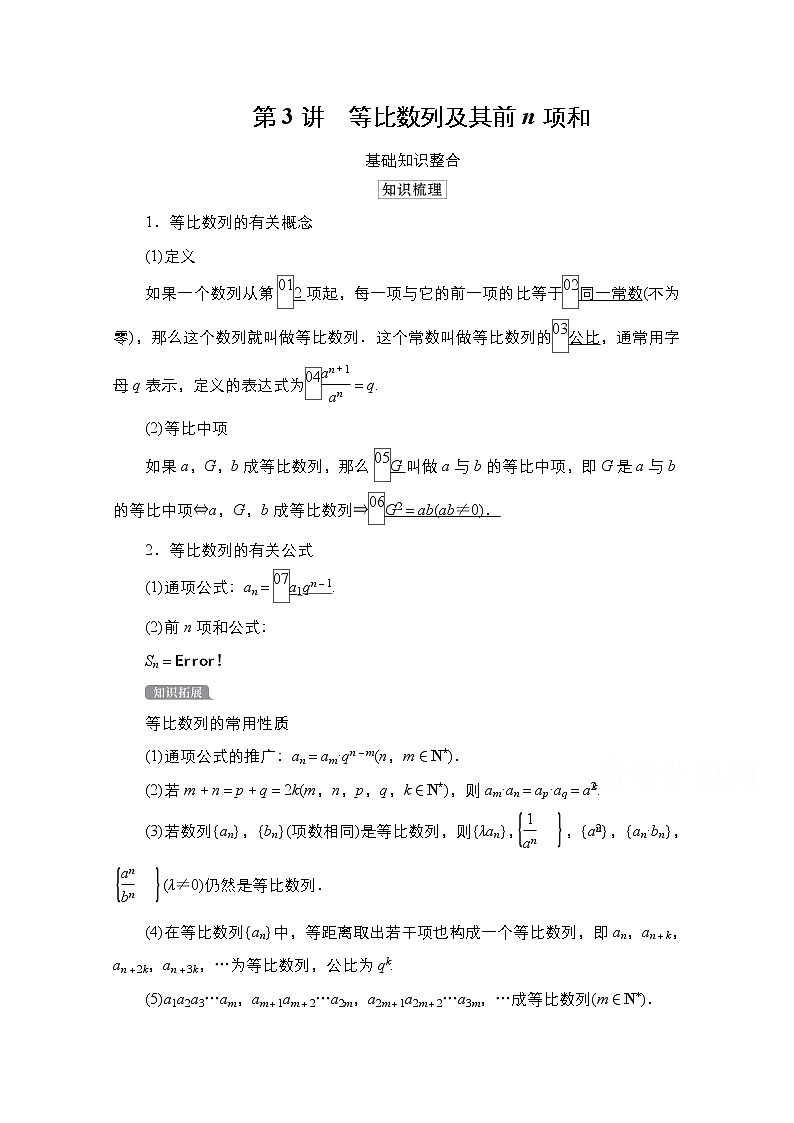 第 3 讲　等比数列及其前 n 项和
基础知识整合
知识梳理
1．等比数列的有关概念
(1)定义
如果一个数列从第 01 2 项起，每一项与它的前一项的比等于 02 同一常数(不为
零)，那么这个数列就叫做等比数列．这个常数叫做等比数列的 03 公比，通常用字
母 q 表示，定义的表达式为 04 an＋1/an＝q.
(2)等比中项
如果 a，G，b 成等比数列，那么 05 G 叫做 a 与 b 的等比中项，即 G 是 a 与 b
的等比中项⇔a，G，b 成等比数列⇒ 06 G2＝ab(ab≠0)．
2．等比数列的有关公式
(1)通项公式：an＝ 07 a1qn－1.
(2)前 n 项和公式：
Sn＝Error!
知识拓展
等比数列的常用性质
(1)通项公式的推广：an＝am·qn－m(n，m∈N*)．
(2)若 m＋n＝p＋q＝2k(m，n，p，q，k∈N*)，则 am·an＝ap·aq＝a2k.
(3)若数列{an}，{bn}(项数相同)是等比数列，则{λan}，{1/an}，{a2n}，{an·bn}，
{an/bn}(λ≠0)仍然是等比数列．
(4)在等比数列{an}中，等距离取出若干项也构成一个等比数列，即 an，an＋k，
an＋2k，an＋3k，…为等比数列，公比为 qk.
(5)a1a2a3…am，am＋1am＋2…a2m，a2m＋1a2m＋2…a3m，…成等比数列(m∈N*)．